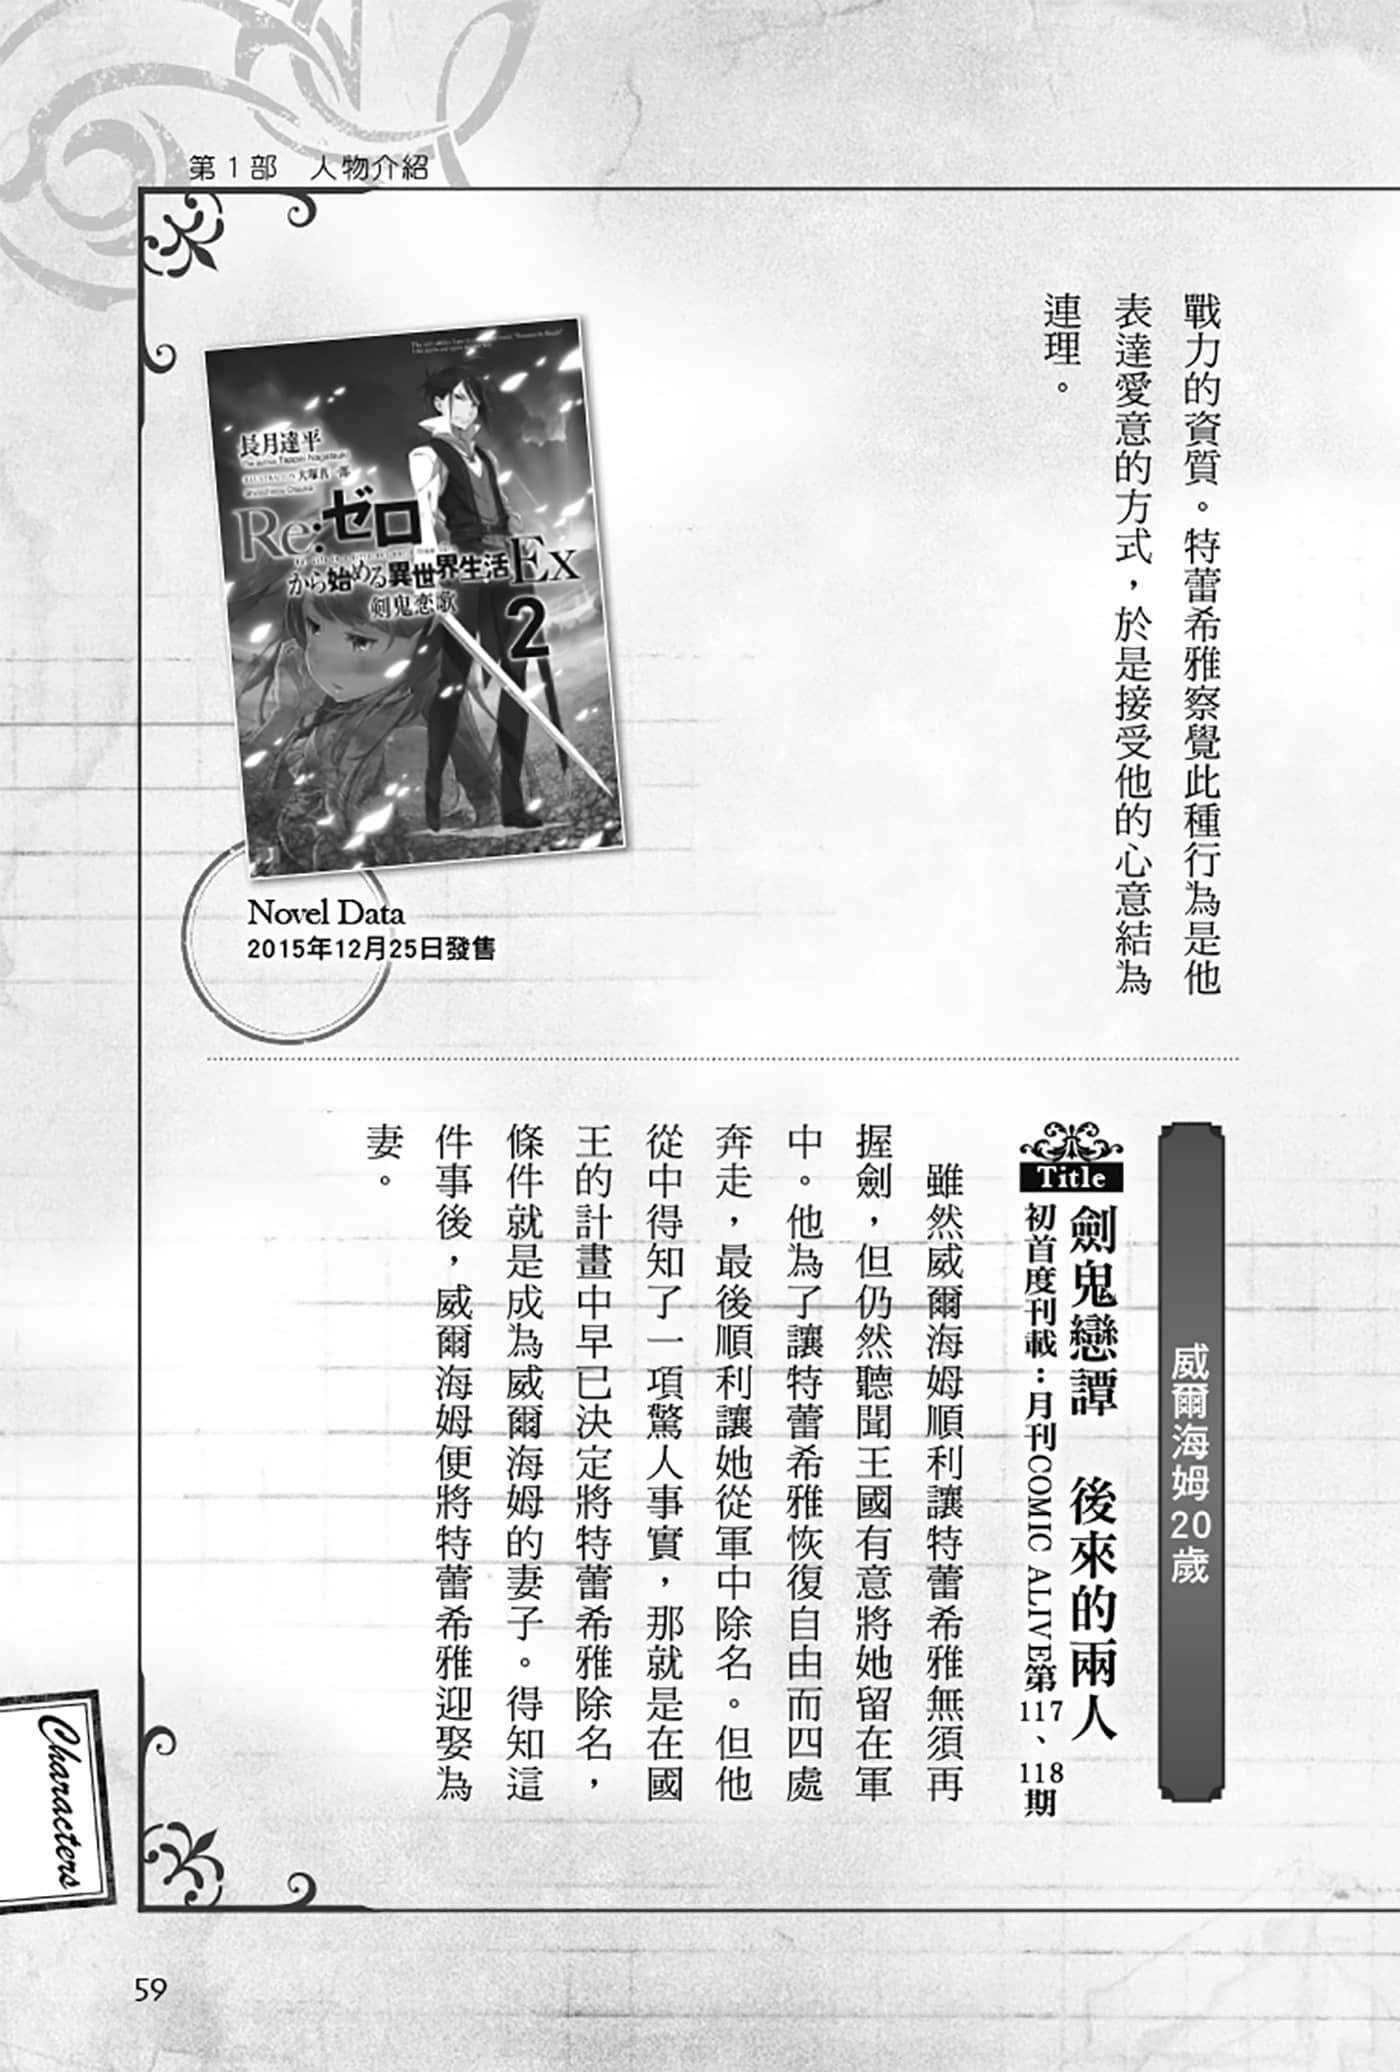 第1部　人物介紹
戰力的資質。特蕾希雅察覺此種行為是他
表達愛意的方式，於是接受他的心意結為
連理。
長月達平
大塚真一郎
Re:ゼロ
から始める異世界生活Ex
剣鬼恋歌
2
Novel Data
2015年12月25日發售
威爾海姆20歲
Title
劍鬼戀譚　後來的兩人
初首度刊載：月刊COMIC ALIVE第117、118期
雖然威爾海姆順利讓特蕾希雅無須再
握劍，但仍然聽聞王國有意將她留在軍
中。他為了讓特蕾希雅恢復自由而四處
奔走，最後順利讓她從軍中除名。但他
從中得知了一項驚人事實，那就是在國
王的計畫中早已決定將特蕾希雅除名，
條件就是成為威爾海姆的妻子。得知這
件事後，威爾海姆便將特蕾希雅迎娶為
妻。
Characters
59